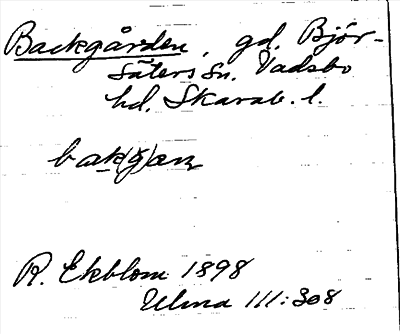 Backgården, gd. Björ-
säters sn. Vadsbo
hd. Skarab. l.
bak(g)an
R. Ekblom 1898
Ulma 111:308